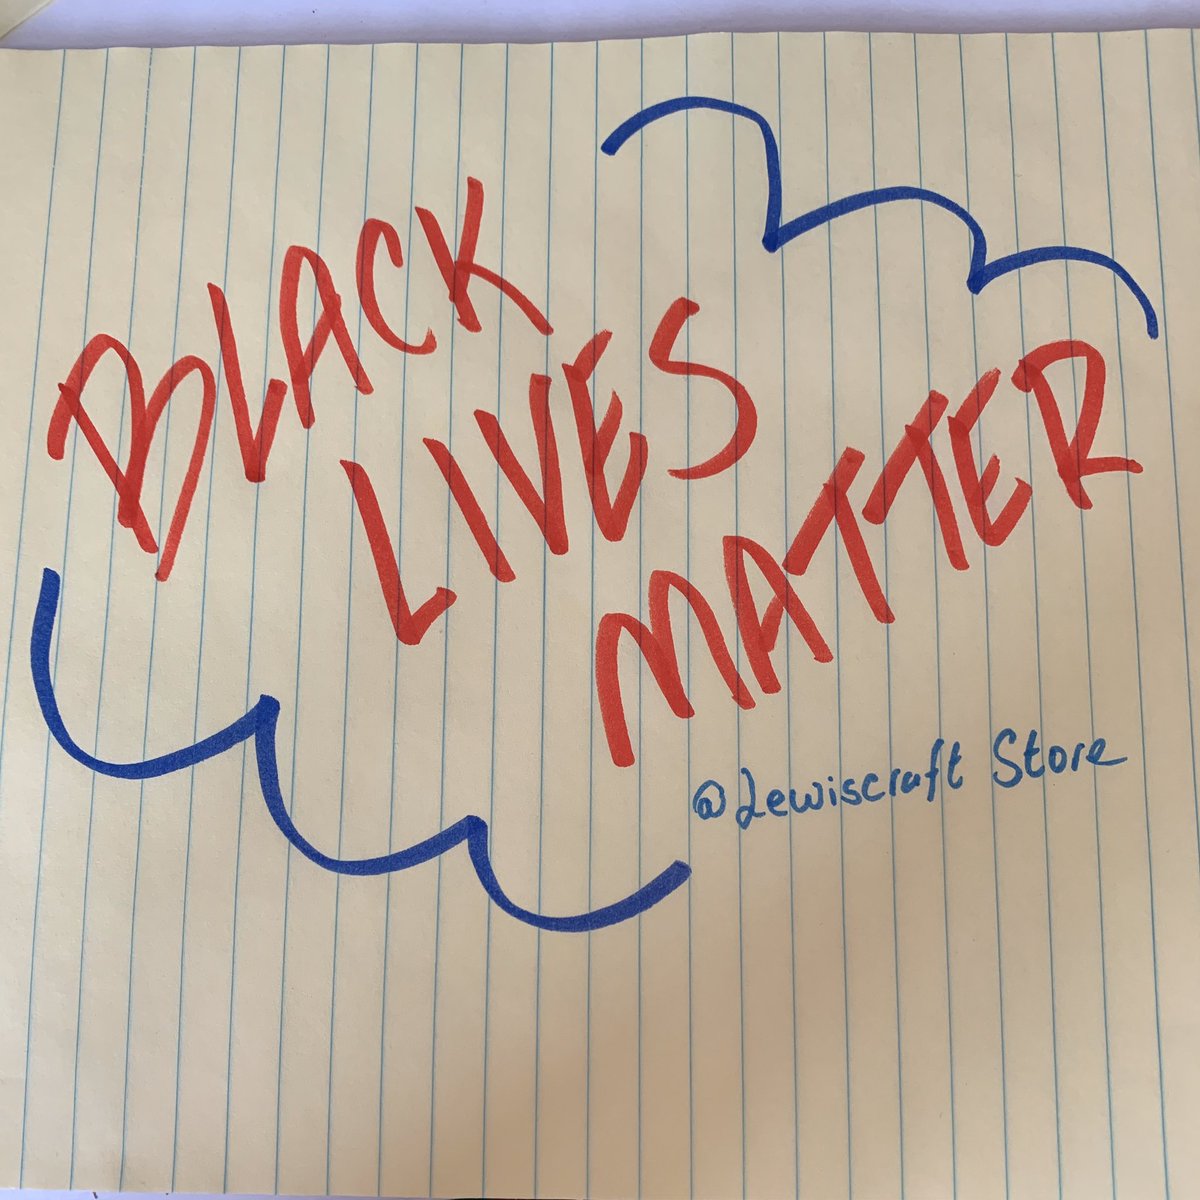 BLACK
LIVES
MATTER
@Lewiscraft Store